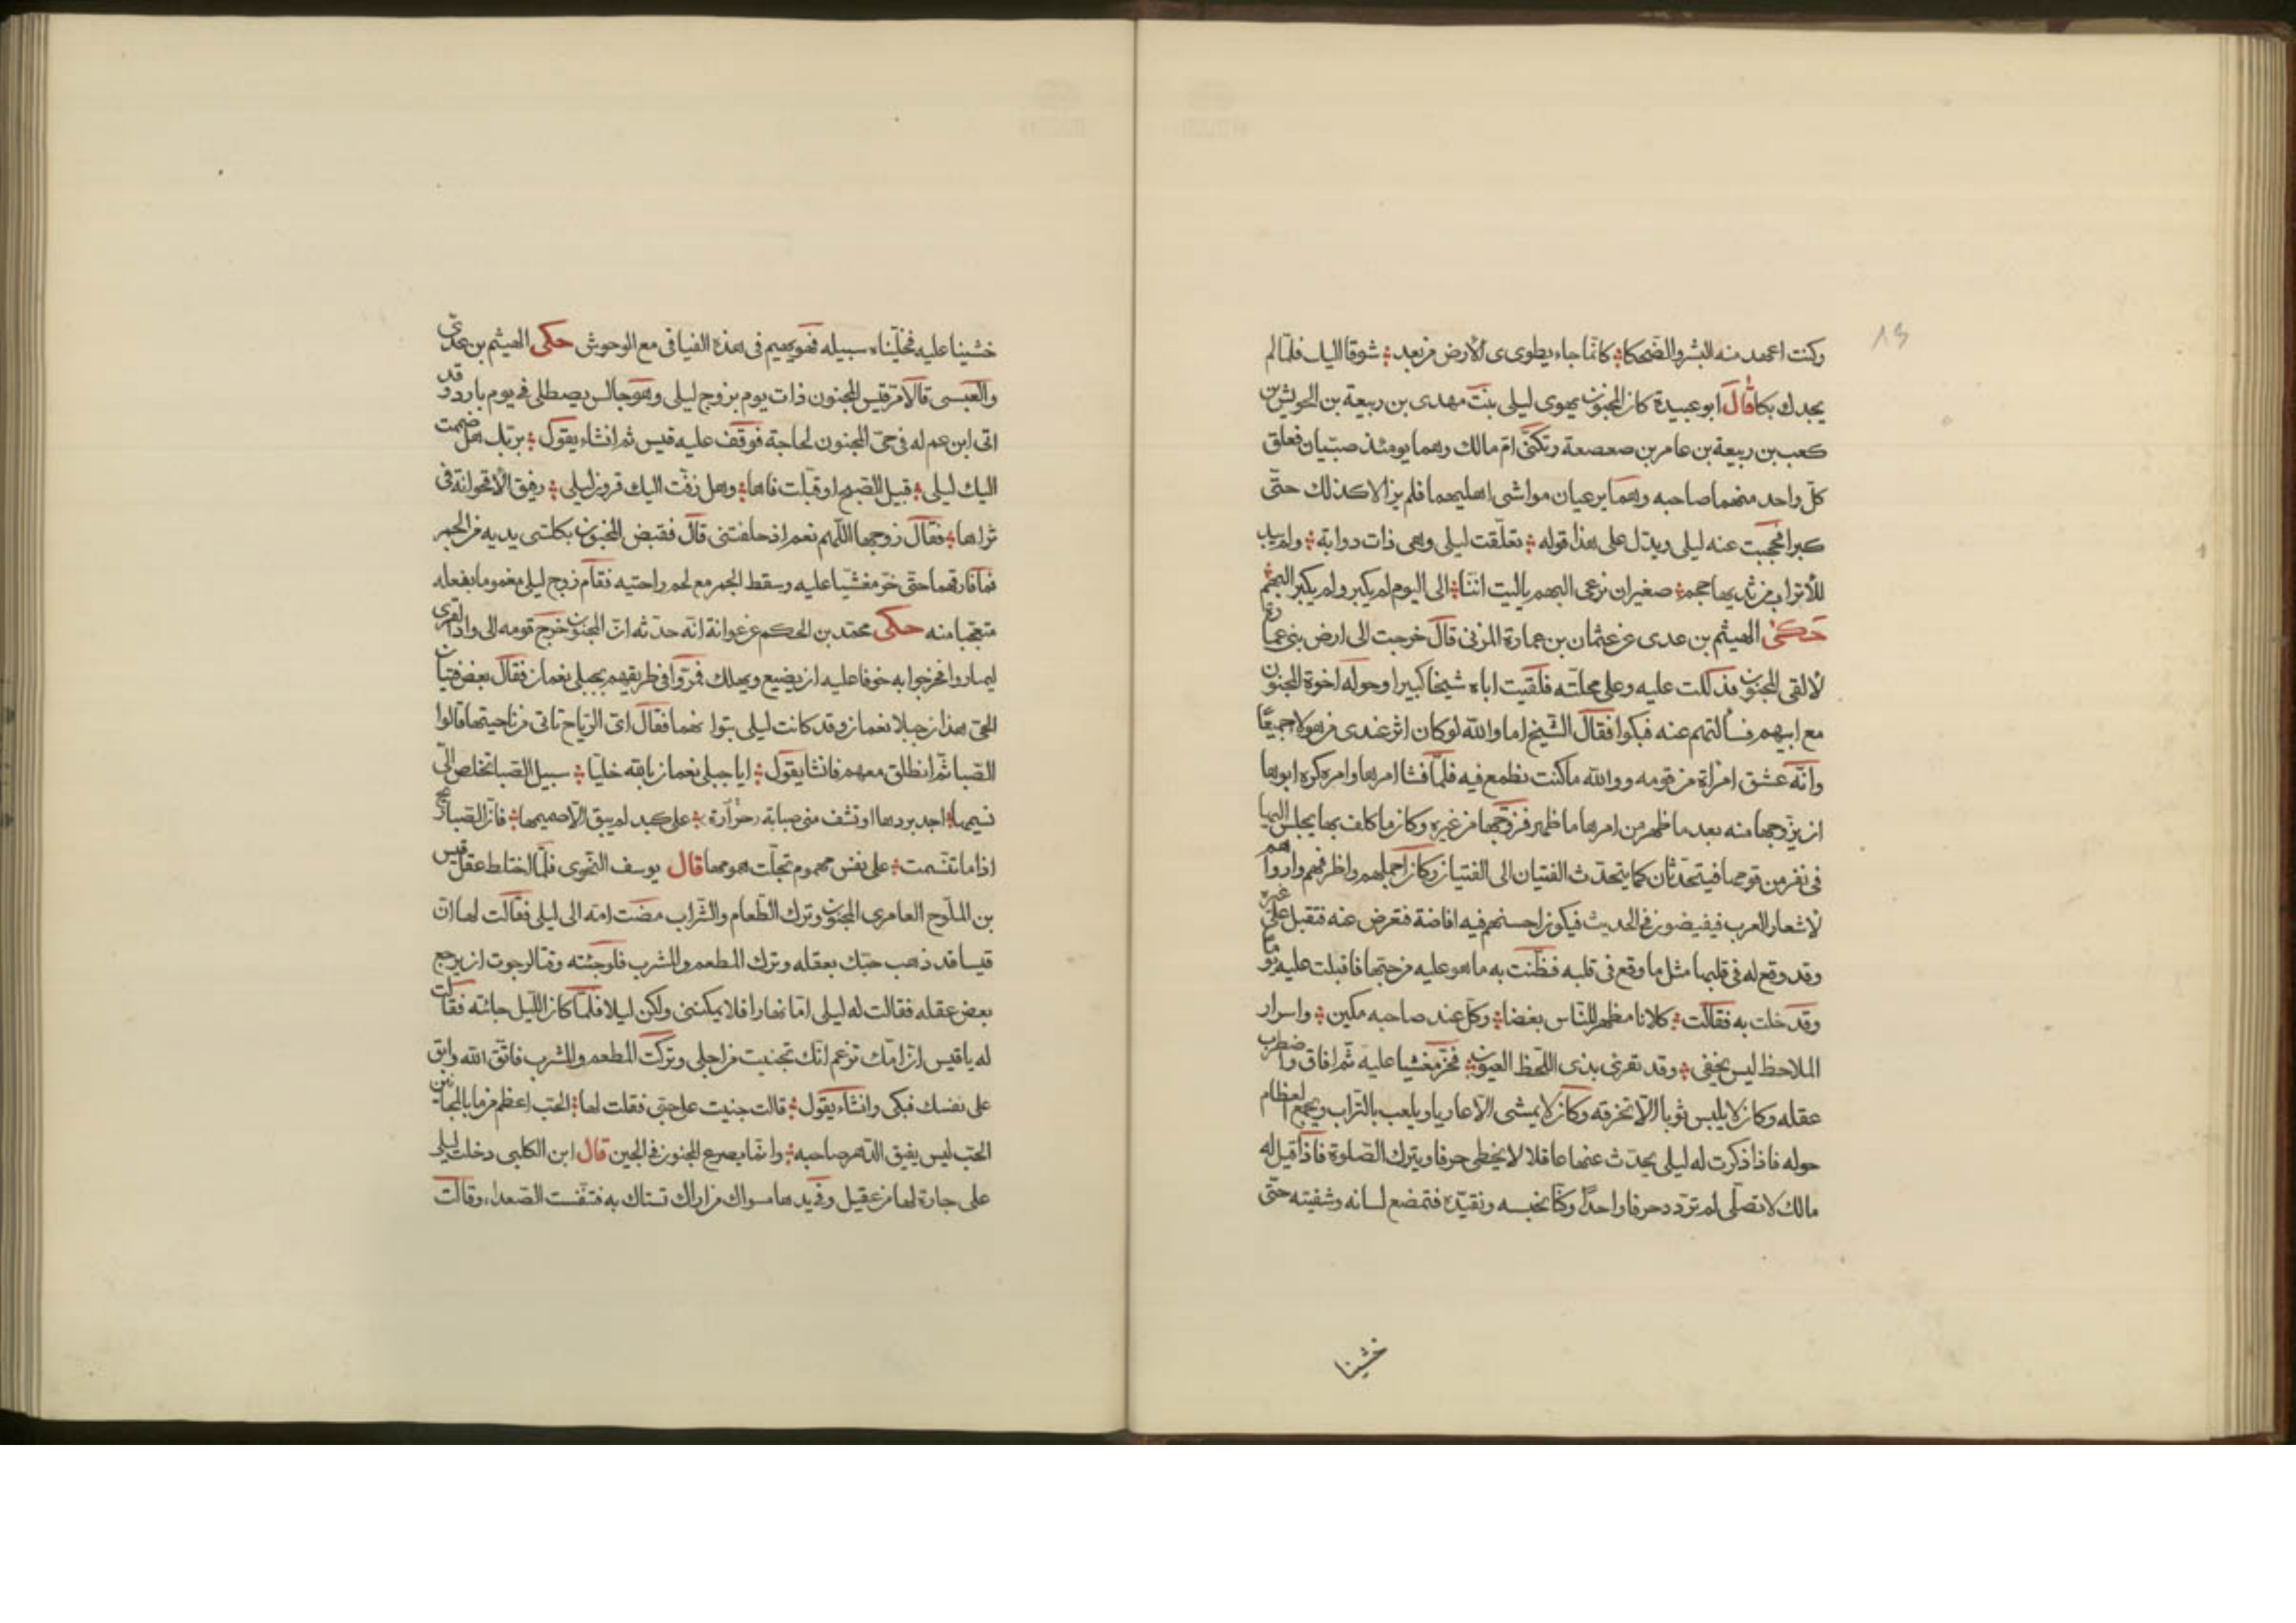 13
وكنت اعهد منه البشر والضحكا ؛ كانما جاء يطوى ى الارض من بعد ؛ شوقا اليك فلما لم
يجدك بكا قال ابو عبيدة كان المجنون يهوى ليلى بنت مهدى بن ربيعة بن الحريش بن
كعب بن ربيعة بن عامر بن صعصعة وتكنى ام مالك وهما يومئذ صبيان فعلق
كل واحد منهما صاحبه وهما يرعيان مواشى اهليهما فلم يزالا كذلك حتى
كبرا فحجبت عنه ليلى ويدل على هذا قوله ؛ تعلقت ليلى وهى ذات دوابة ؛ ولم يبد
للاتراب من ثديها حجم ؛ صغيران نرعى البهم ياليت اننا ؛ الى اليوم لم يكبر ولم يكبر البهم
حكى الهيثم بن عدى عن عثمان بن عمارة المزنى قال خرجت الى ارض بنى عامر
لالقى المجنون فدللت عليه وعلى محلته فلقيت اباه شيخا كبيرا وحوله اخوة المجنون
مع ابيهم فسألتهم عنه فبكوا فقال الشيخ اما والله لو كان اثر عندى من هولا جميعا
وانه عشق امرأة من قومه ووالله ما كنت تطمع فيه فلما فشا امرها وامره كره ابوها
ان يزوجها منه بعد ما ظهر من امرها ما ظهر فزوجها من غيره وكان ما كلف بها يجلس اليها
فى نفر من قومها فيتحدثان كما يتحدث الفتيان الى الفتيان وكان اجملهم واظرفهم واروا هم
لاشعار العرب فيفيضون فى الحديث فيكون احسنهم فيه افاضة فتعرض عنه فتقبل على غيره
وقد وقع له فى قلبها مثل ما وقع فى قلبه فظنت به ما هو عليه من حبها فاقبلت عليه يوما
وقد خلت به فقالت ؛ كلانا مظهر للناس بغضا ؛ وكل عند صاحبه مكين ؛ واسرار
الملاحظ ليس يخفى ؛ وقد تغرى بذى اللحظ العيون ؛ فخر مغشيا عليه ثم افاق واضطرب
عقله وكان لا يلبس ثوبا الا تخرقه وكان لا يمشى الا عاريا ويلعب بالتراب ويجمع العظام
حوله فاذا ذكرت له ليلى يحدث عنها عاقلا لا يخطى حرفا ويترك الصلوة فاذا قيل له
مالك لا تصلى لم تردد حرفا واحدا وكنا نحبسه ونقيده فتمضع لسانه وشفيته حتى
خشينا
خشينا عليه فخليناه سبيله فهو يهيم فى هذه الفيافى مع الوحوش حكى الهيثم بن عدى
والعبسى قالا مر قيس المجنون ذات يوم بزوج ليلى وهو جالس يصطلى فى يوم بارد وقد
اتى ابن عم له فى حى المجنون لحاجة فوقف عليه قيس ثم انشاء يقول ؛ بربك هل ضممت
اليك ليلى ؛ قبيل الصبح او قبلت فاها ؛ وهل زفت اليك قرون ليلى ؛ رفيق الاقحوانة فى
ثراها ؛ فقال زوجها اللهم نعم اذ حلفتنى قال فقبض المجنون بكلتى يديه من الجمر
فما فارقهما حتى خر مغشيا عليه وسقط الجمر مع لحم راحتيه فقام زوج ليلى مغموما بفعله
متعجبا منه حكى محمد بن الحكم عن عوانة انه حدثه ان المجنون خرج قومه الى وادا القرى
ليماروا فخرجوا به خوفا عليه ان يضيع ويهلك فمروا فى طريقهم بجبلى نعمان فقال بعض فتيان
الحى هذان جبلا نعمان وقد كانت ليلى بتوا بهما فقال اى الرياح تاتى من ناحيتها قالوا
الصبا ثم انطلق معهم فانشا يقول ؛ ايا جبلى نعمان بالله خليا ؛ سبيل الصبا تخلص الى
نسيمها ؛ اجد بردها او تشف منى صبابة حرارة ؛ على كبد لم يبق الا صميمها ؛ فان الصبا ريح
اذا ما تنسمت ؛ على نفس مهموم تجلت همومها قال يوسف النحوى فلما اختلط عقل قيس
بن الملوح العامرى المجنون وترك الطعام والشراب مضت امه الى ليلى فقالت لها ان
قيسا قد ذهب حبك بعقله وترك المطعم والمشرب فلو جئته وقتا لرجوت ان يرجع
بعض عقله فقالت له ليلى اما نهارا فلا يمكننى ولكن ليلا فلما كان الليل جائته فقالت
له ياقيس ان امك تزعم انك تجننت من اجلى وتركت المطعم والمشرب فاتق الله وابق
على نفسك فبكى وانشاء يقول ؛ قالت جننت على حبى فقلت لها ؛ الحب اعظم من ما بالمجانين
الحب ليس يفيق الدهر صاحبه ؛ وانما يصرع المجنون فى الحين قال ابن الكلبى دخلت ليلى
على جارة لها من عقيل وفى يدها مسواك من اراك تستاك به فتنفست الصعداء وقالت